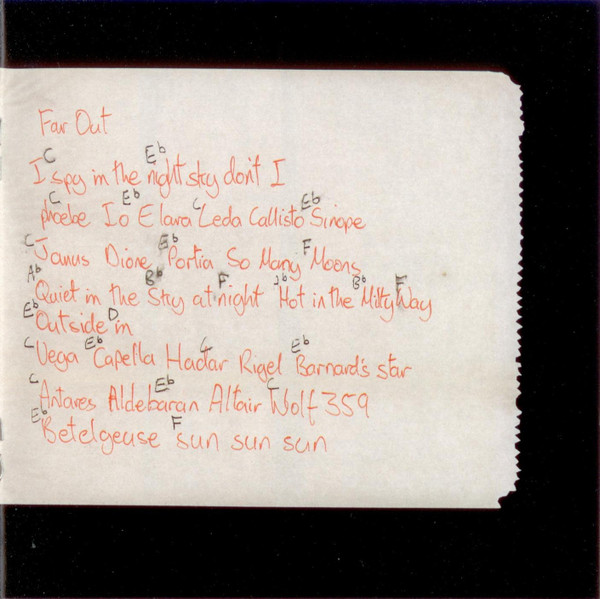 Far Out
C Eb
I spy in the night sky don't I
C Eb C Eb
phoebe Io Elara Leda Callisto Sinope
C Eb F
Janus Dione Portia So Many Moons
Ab Bb F Ab Bb F
Quiet in the Sky at night Hot in the Milky Way
Eb D
Outside in
C Eb C Eb
Vega Capella Hadar Rigel Barnard's star
C Eb C
Antares Aldebaran Altair Wolf 359
Eb F
Betelgeuse sun sun sun